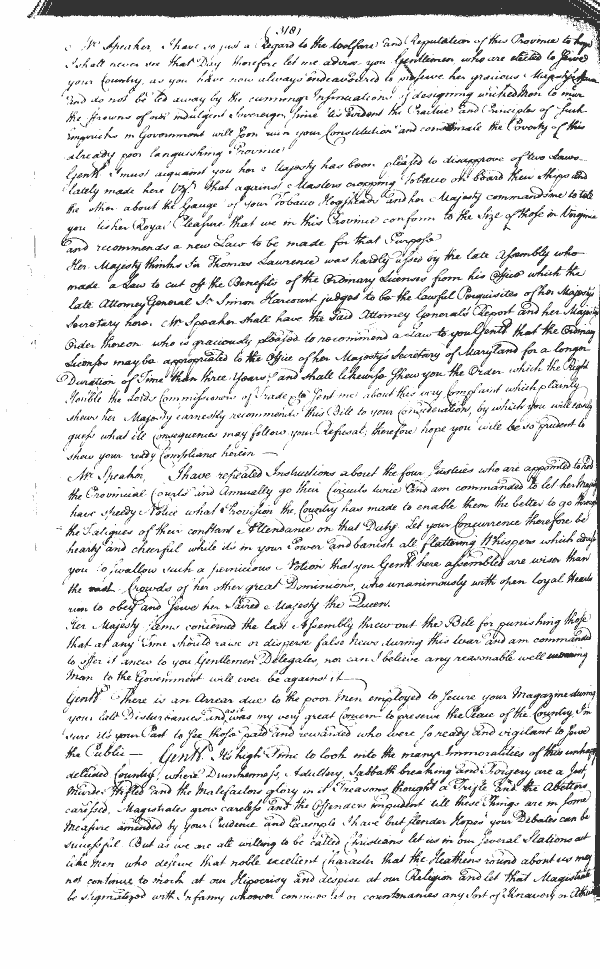 (318)
Mr Speaker, I have so just a Regard to the Welfare and Reputation of this Province to hope
I shall never see that Day therefore let me advise you Gentlemen who are elected to serve
your Country, as you have now always endeavoured to preserve her gracious Majestys
and do not be led away by the cunning Insinuations of designing wicked Men to incur
the frowns of our indulgent Sovereign, since tis evident the Practice and Principles of such
in Government will soon ruin your Constitution and the Poverty of this
already poor languishing Province.
Gentn I must acquaint you her Majesty has been pleased to disapprove of two Laws
lately made here Vizt that against Masters cropping Tobacco on board their Ships and
the other about the Gauge of your Tobacco Hogsheads and her Majesty commands me to tell
you tis her Royal Pleasure that we in this Province conform to the Size of those in Virginia
and recommends a new Law to be made for that Purpose
Her Majesty thinks Sir Thomas Lawrence was hardly used by the late Assembly who
made a Law to cut off the Benefits of the Ordinary Licenses from his Office which the
late Attorney General Sr Simon Harcourt judges to be the lawful Perquisites of her Majestys
Secretary here. Mr Speaker shall have the said Attorney Generals Report and her Majestys
Order thereon who is graciously pleased to recommend a Law to you Gentn that the Ordinary
Licenses may be appropriated to the Office of her Majestys Secretary of Maryland for a longer
Duration of Time than three Years, and shall likewise shew you the Order which the Right
Honble the Lords Commissioners of Trade &c sent me about this very Complaint which plainly
shews her Majesty earnestly recommends this Bill to your Consideration, by which you will easily
guess what ill Consequences may follow your Refusal, therefore hope you will be so prudent to
shew your ready Compliance herein —
Mr Speaker, I have repeated Instructions about the four Justices who are appointed to hold
the Provincial Courts and Annually go their Circuits twice and am commanded to let her Majesty
have speedy Notice what Provision the Country has made to enable them the better to go through
the Fatigues of their constant Attendance on that Duty. Let your Concurrence therefore be
hearty and cheerful while its in your Power and banish all flattering Whispers which
you to swallow such a pernicious Notion that you Gentn here assembled are wiser than
the vast Crowds of her other great Dominions, who unanimously with open loyal Hearts
run to obey and serve her Sacred Majesty the Queen.
Her Majesty seems concerned the last Assembly threw out the Bill for punishing those
that at any Time should raise or disperse false News during this War and am commanded
to offer it anew to you Gentlemen Delegates, nor can I believe any reasonable well meaning
Man to the Government will ever be against it —
Gentn There is an Arrear due to the poor Men employed to secure your Magazine during
your late Disturbances and as it was my very great Concern to preserve the Peace of the Country I'm
sure it's your Part to see those paid and rewarded who were so ready and vigilant to serve
the Public — Gentn It's high Time to look into the many Immoralities of this unhappy
deluded Country, where Drunkenness, Adultery, Sabbath breaking and Forgery are a Jest,
Murder stifled and the Malefactors glory in it Treasons thought a Trifle and the Abettors
caressed, Magistrates grow careless and the Offenders impudent till these Things are in some
Measure amended by your Prudence and Example I have but slender Hopes your Debates can be
successful But as we are all willing to be called Christians let us in our several Stations act
like Men who deserve that noble excellent Character that the Heathens round about us may
not continue to mock at our Hipocrisy and despise at our Religion and let that Magistrate
be stigmatized with Infamy whoever connives at or countenances any Sort of Knavery or